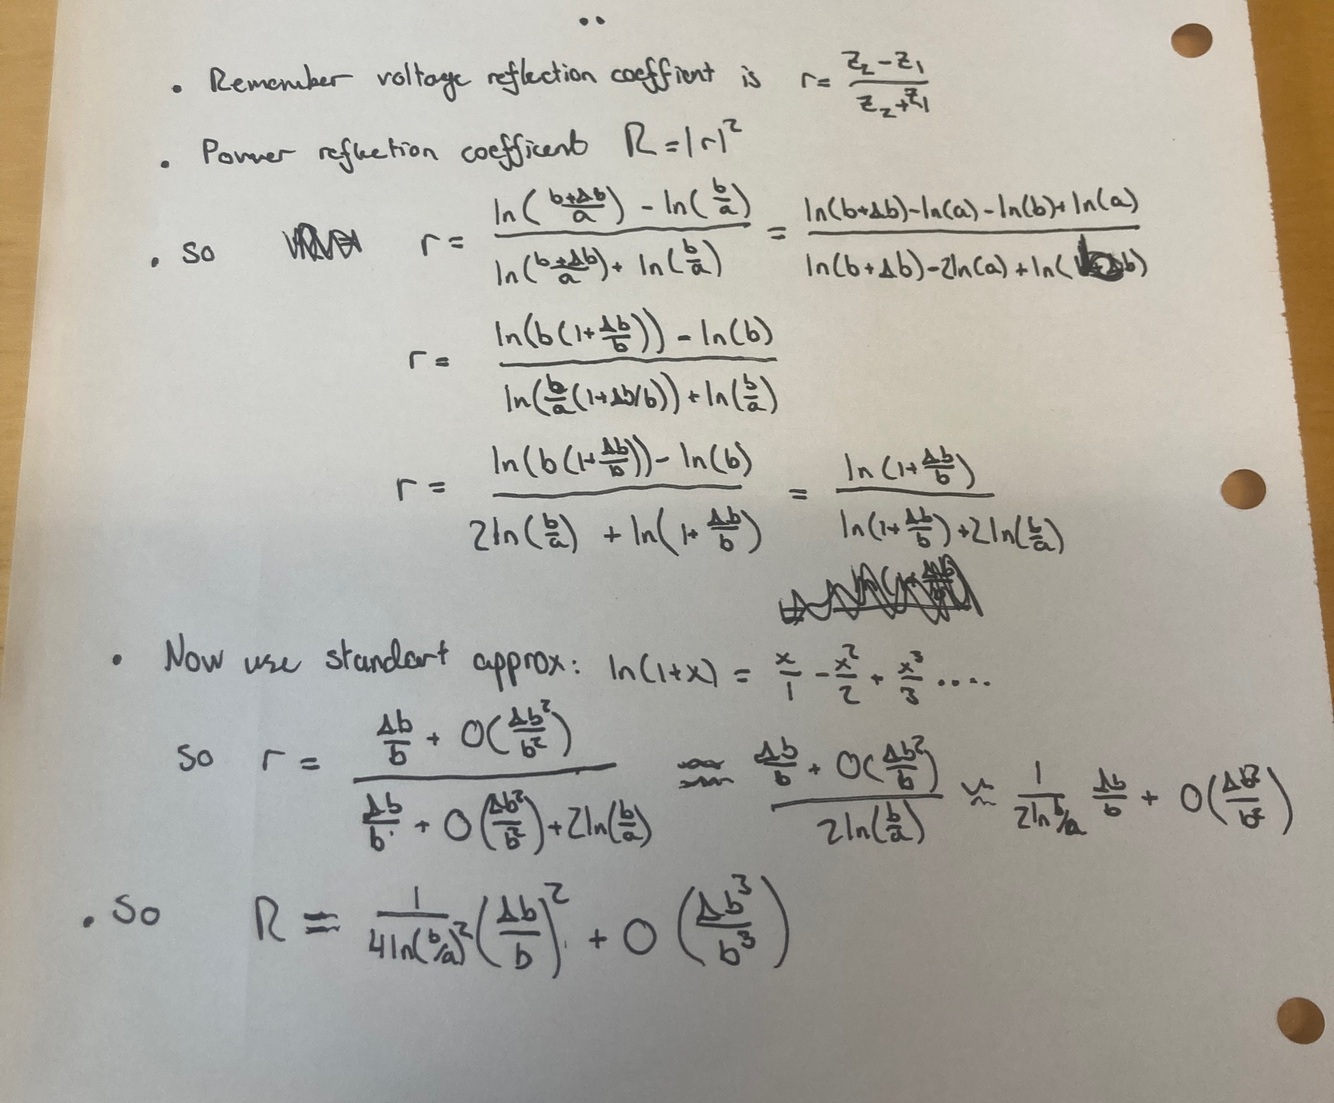 • Remember voltage reflection coeffient is r = \frac{z_2 - z_1}{z_2 + z_1}
• Power reflection coefficent R = |r|^2
• So r = \frac{ln(\frac{b+Δb}{a}) - ln(\frac{b}{a})}{ln(\frac{b+Δb}{a}) + ln(\frac{b}{a})} = \frac{ln(b+Δb) - ln(a) - ln(b) + ln(a)}{ln(b+Δb) - 2ln(a) + ln(b)}
r = \frac{ln(b(1+\frac{Δb}{b})) - ln(b)}{ln(\frac{b}{a}(1+Δb/b)) + ln(\frac{b}{a})}
r = \frac{ln(b(1+\frac{Δb}{b})) - ln(b)}{2ln(\frac{b}{a}) + ln(1+\frac{Δb}{b})} = \frac{ln(1+\frac{Δb}{b})}{ln(1+\frac{Δb}{b}) + 2ln(\frac{b}{a})}
• Now use standart approx: ln(1+x) = \frac{x}{1} - \frac{x^2}{2} + \frac{x^3}{3} ....
so r = \frac{\frac{Δb}{b} + O(\frac{Δb^2}{b^2})}{\frac{Δb}{b} + O(\frac{Δb^2}{b^2}) + 2ln(\frac{b}{a})} ≈ \frac{\frac{Δb}{b} + O(\frac{Δb^2}{b})}{2ln(\frac{b}{a})} ≈ \frac{1}{2ln b/a} \frac{Δb}{b} + O(\frac{Δb^2}{b^2})
• So R = \frac{1}{4ln(b/a)^2} (\frac{Δb}{b})^2 + O(\frac{Δb^3}{b^3})